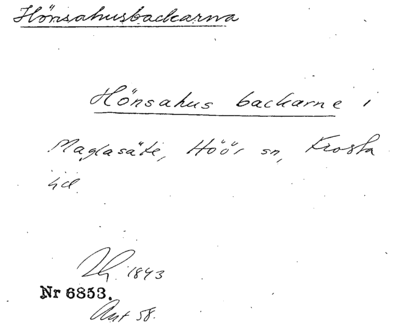 Hönsahusbackarna
Hönsahus backarne i
Maglasäte, Höör sn, Frosta
hd.
1843
Nr 6853.
Ant 58.